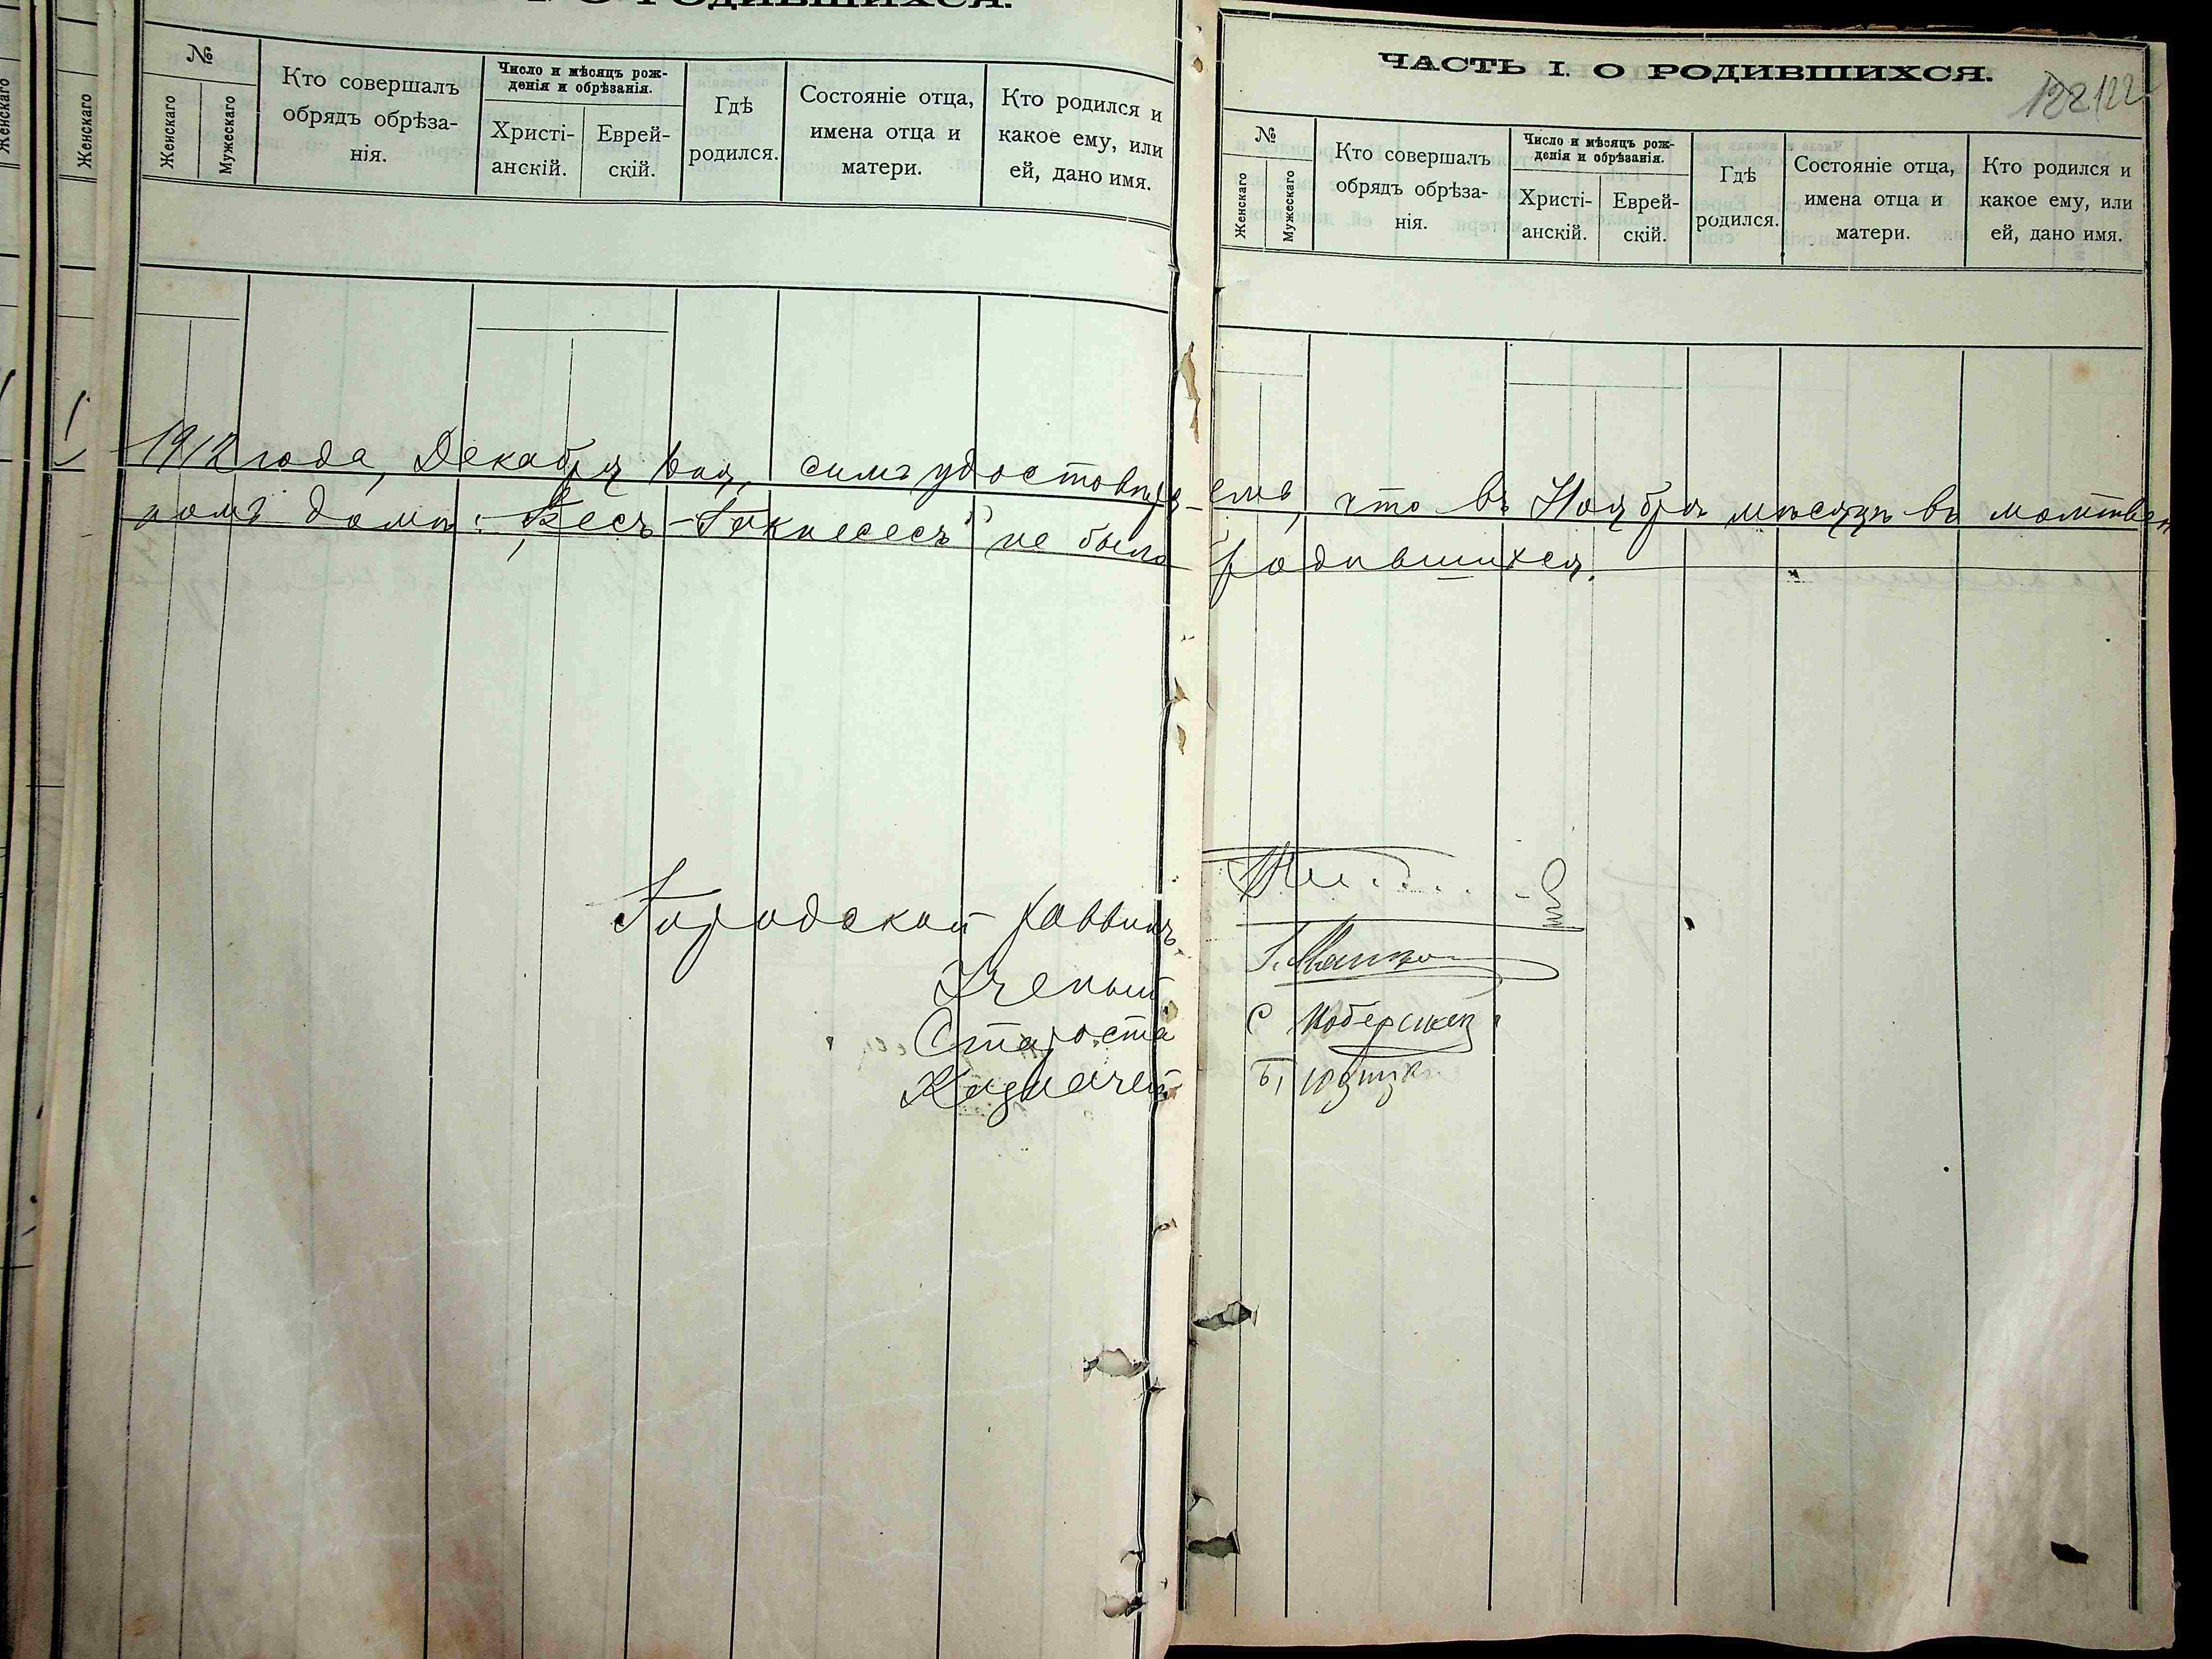 О РОДИВШИХСЯ.
№
Женскаго
Мужескаго
Кто совершалъ
обрядъ обрѣза-
нія.
Число и мѣсяцъ рож-
денія и обрѣзанія.
Христі-
анскій.
Еврей-
скій.
Гдѣ
родился.
Состояніе отца,
имена отца и
матери.
Кто родился и
какое ему, или
ей, дано имя.
Женскаго
Женскаго
ЧАСТЬ I. О РОДИВШИХСЯ.
122
№
Женскаго
Мужескаго
Кто совершалъ
обрядъ обрѣза-
нія.
Число и мѣсяцъ рож-
денія и обрѣзанія.
Христі-
анскій.
Еврей-
скій.
Гдѣ
родился.
Состояніе отца,
имена отца и
матери.
Кто родился и
какое ему, или
ей, дано имя.
1912 года, Декабря дня, симъ удостовѣря-емъ, что въ Ноябрѣ мѣсяцѣ въ молитвен
номъ домѣ: „Бесъ-Гакнесесъ" не было родившихся.
Городской раввинъ
Ученый
Староста
Казначей